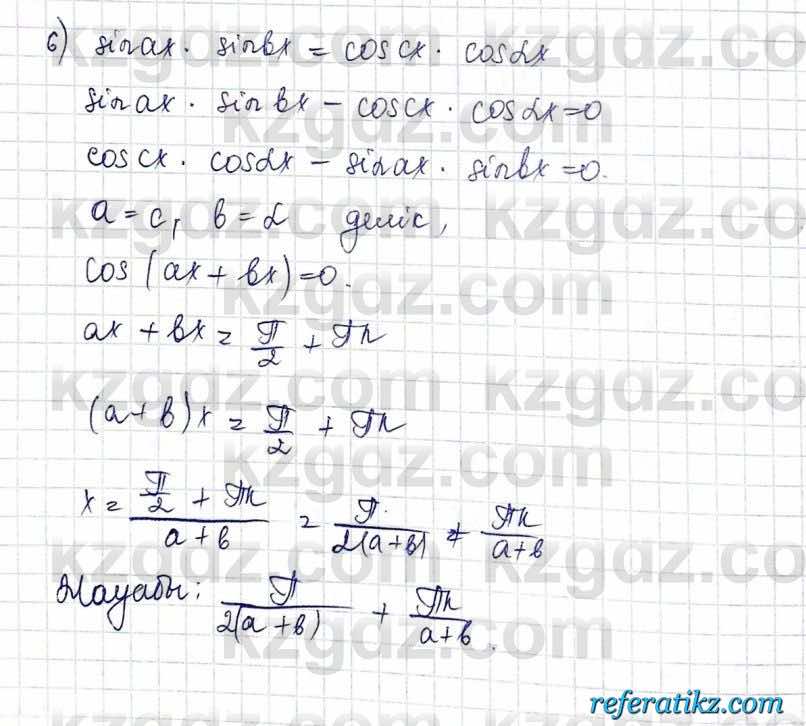 6) sin ax · sin bx = cos cx · cos dx
sin ax · sin bx - cos cx · cos dx = 0
cos cx · cos dx - sin ax · sin bx = 0.
a = c, b = d делік,
cos (ax + bx) = 0.
ax + bx = π/2 + πn
(a + b)x = π/2 + πn
x = (π/2 + πn)/(a + b) = π/(2(a + b)) + πn/(a + b)
Жауабы: π/(2(a + b)) + πn/(a + b).
kzgdz.com
referatikz.com